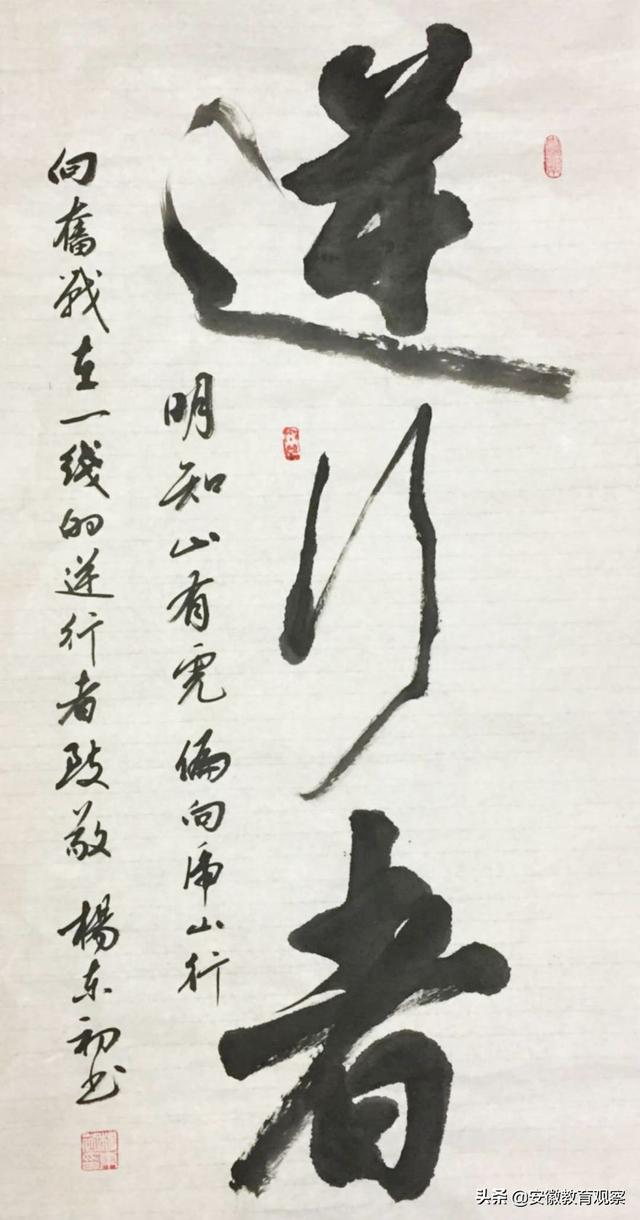 逆行者
明知山有虎 偏向虎山行
向奮戰在一线的逆行者致敬 楊东初书
头条 @安徽教育观察